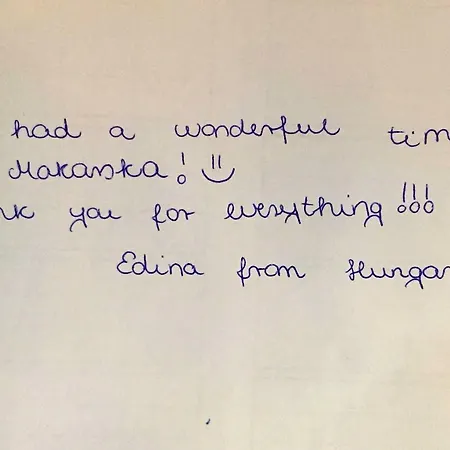 had a wonderful tim
Makarska! :)
nk you for everything!!!
Edina from Hungar